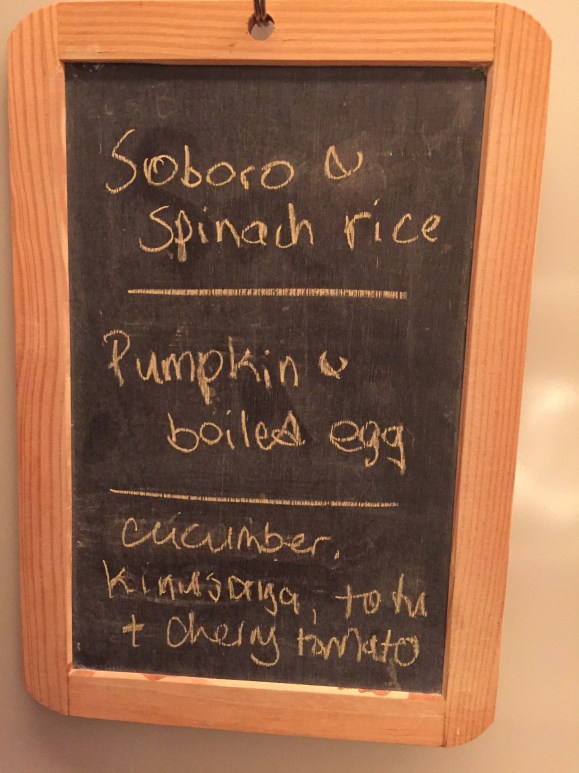 Soboro &
Spinach rice
Pumpkin &
boiled egg
cucumber,
kinusaya, tofu
+ cherry tomato